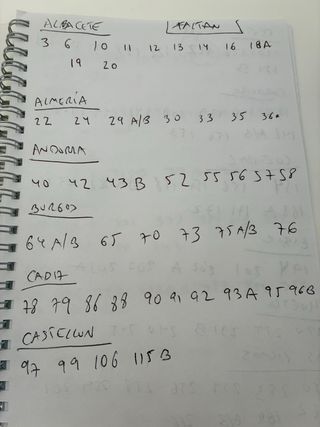 ALBACETE FALTAN
3 6 10 11 12 13 14 16 18A
19 20
ALMERÍA
22 24 29 A/B 30 33 35 36A
ANDORRA
40 42 43 B 52 55 56 57 58
BURGOS
64 A/B 65 70 73 75 A/B 76
CADIZ
78 79 86 88 90 91 92 93A 95 96B
CASTELLON
97 99 106 115 B